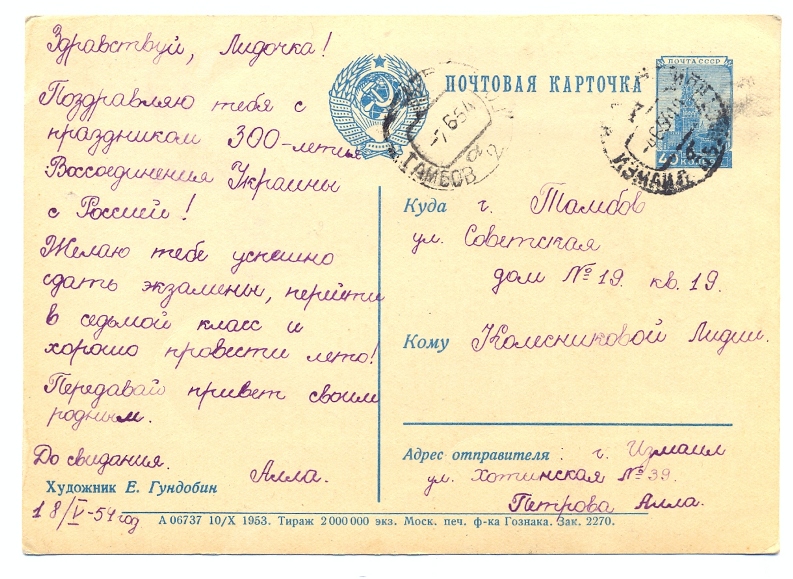 Здравствуй, Лидочка!
Поздравляю тебя с
праздником 300-летия
Воссоединения Украины
с Россией!
Желаю тебе успешно
сдать экзамены, перейти
в седьмой класс и
хорошо провести лето!
Передавай привет своим
родным.
До свидания.
Алла.
Художник Е. Гундобин
18/V-54 год
ПОЧТОВАЯ КАРТОЧКА
ПОЧТА СССР
40
ТАМБОВ
7 6 54
ИЗМАИЛ
Куда г. Тамбов
ул. Советская
дом № 19. кв. 19.
Кому Колесниковой Лидии.
Адрес отправителя: г. Измаил
ул. Хотинская № 39.
Петрова Алла.
А 06737 10/X 1953. Тираж 2 000 000 экз. Моск. печ. ф-ка Гознака. Зак. 2270.